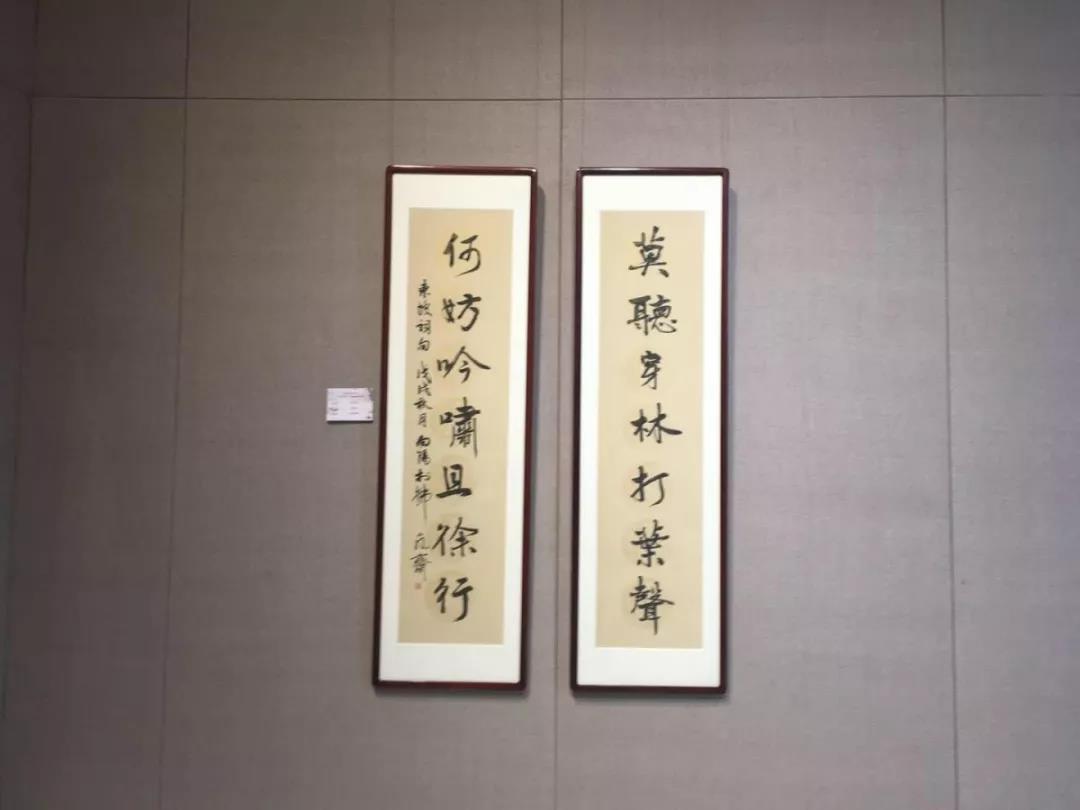 莫聽穿林打葉聲
何妨吟嘯且徐行
東坡詞句 戊戌秋月 向陽